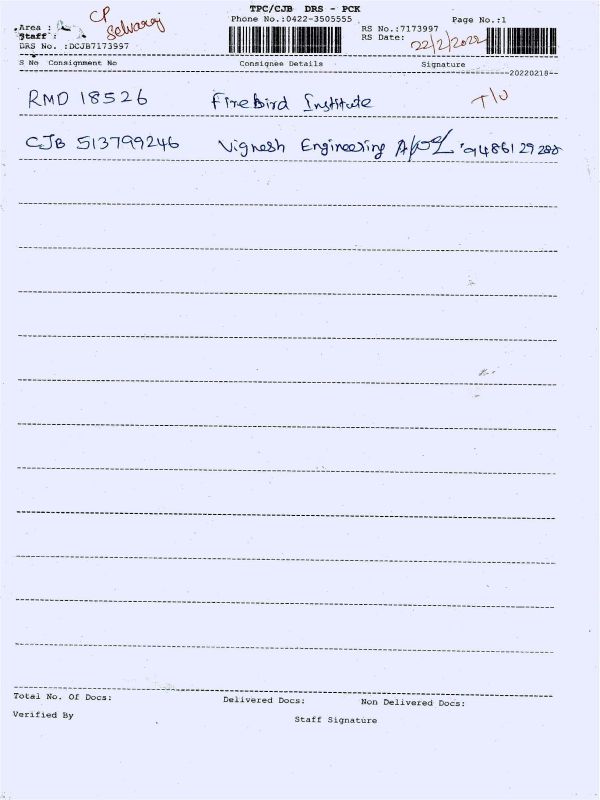 TPC/CJB DRS - PCK
CP
Selvaraj
Area :
Staff :
Phone No.:0422-3505555
RS No.:7173997
Page No.:1
DRS No. :DCJB7173997
RS Date:
22/2/2022
S No Consignment No Consignee Details Signature
20220218
RMD 18526 Firebird Institute T/U
CJB 513799246 Vignesh Engineering
Total No. Of Docs: Delivered Docs: Non Delivered Docs:
Verified By Staff Signature